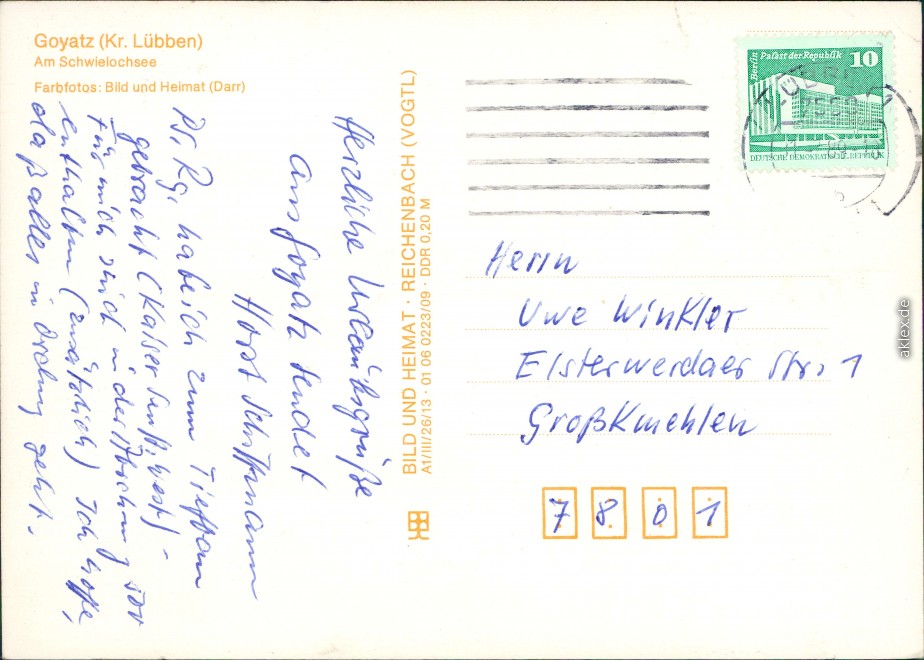 Goyatz (Kr. Lübben)
Am Schwielochsee
Farbfotos: Bild und Heimat (Darr)
Herzliche Urlaubsgrüße
aus Goyatz sendet
Horst
habe ich zum Tiefbau
gebracht (Kaiser
Für mich sind in der
enthalten (zusätzlich) Ich hoffe,
daß alles in Ordnung geht.
BILD UND HEIMAT · REICHENBACH (VOGTL)
A1/III/26/13 · 01 06 0223/09 · DDR 0,20 M
Berlin Palast der Republik 10
DEUTSCHE DEMOKRATISCHE REPUBLIK
Herrn
Uwe Winkler
Elsterwerdaer Str. 1
Großkmehlen
7801
aklex.de